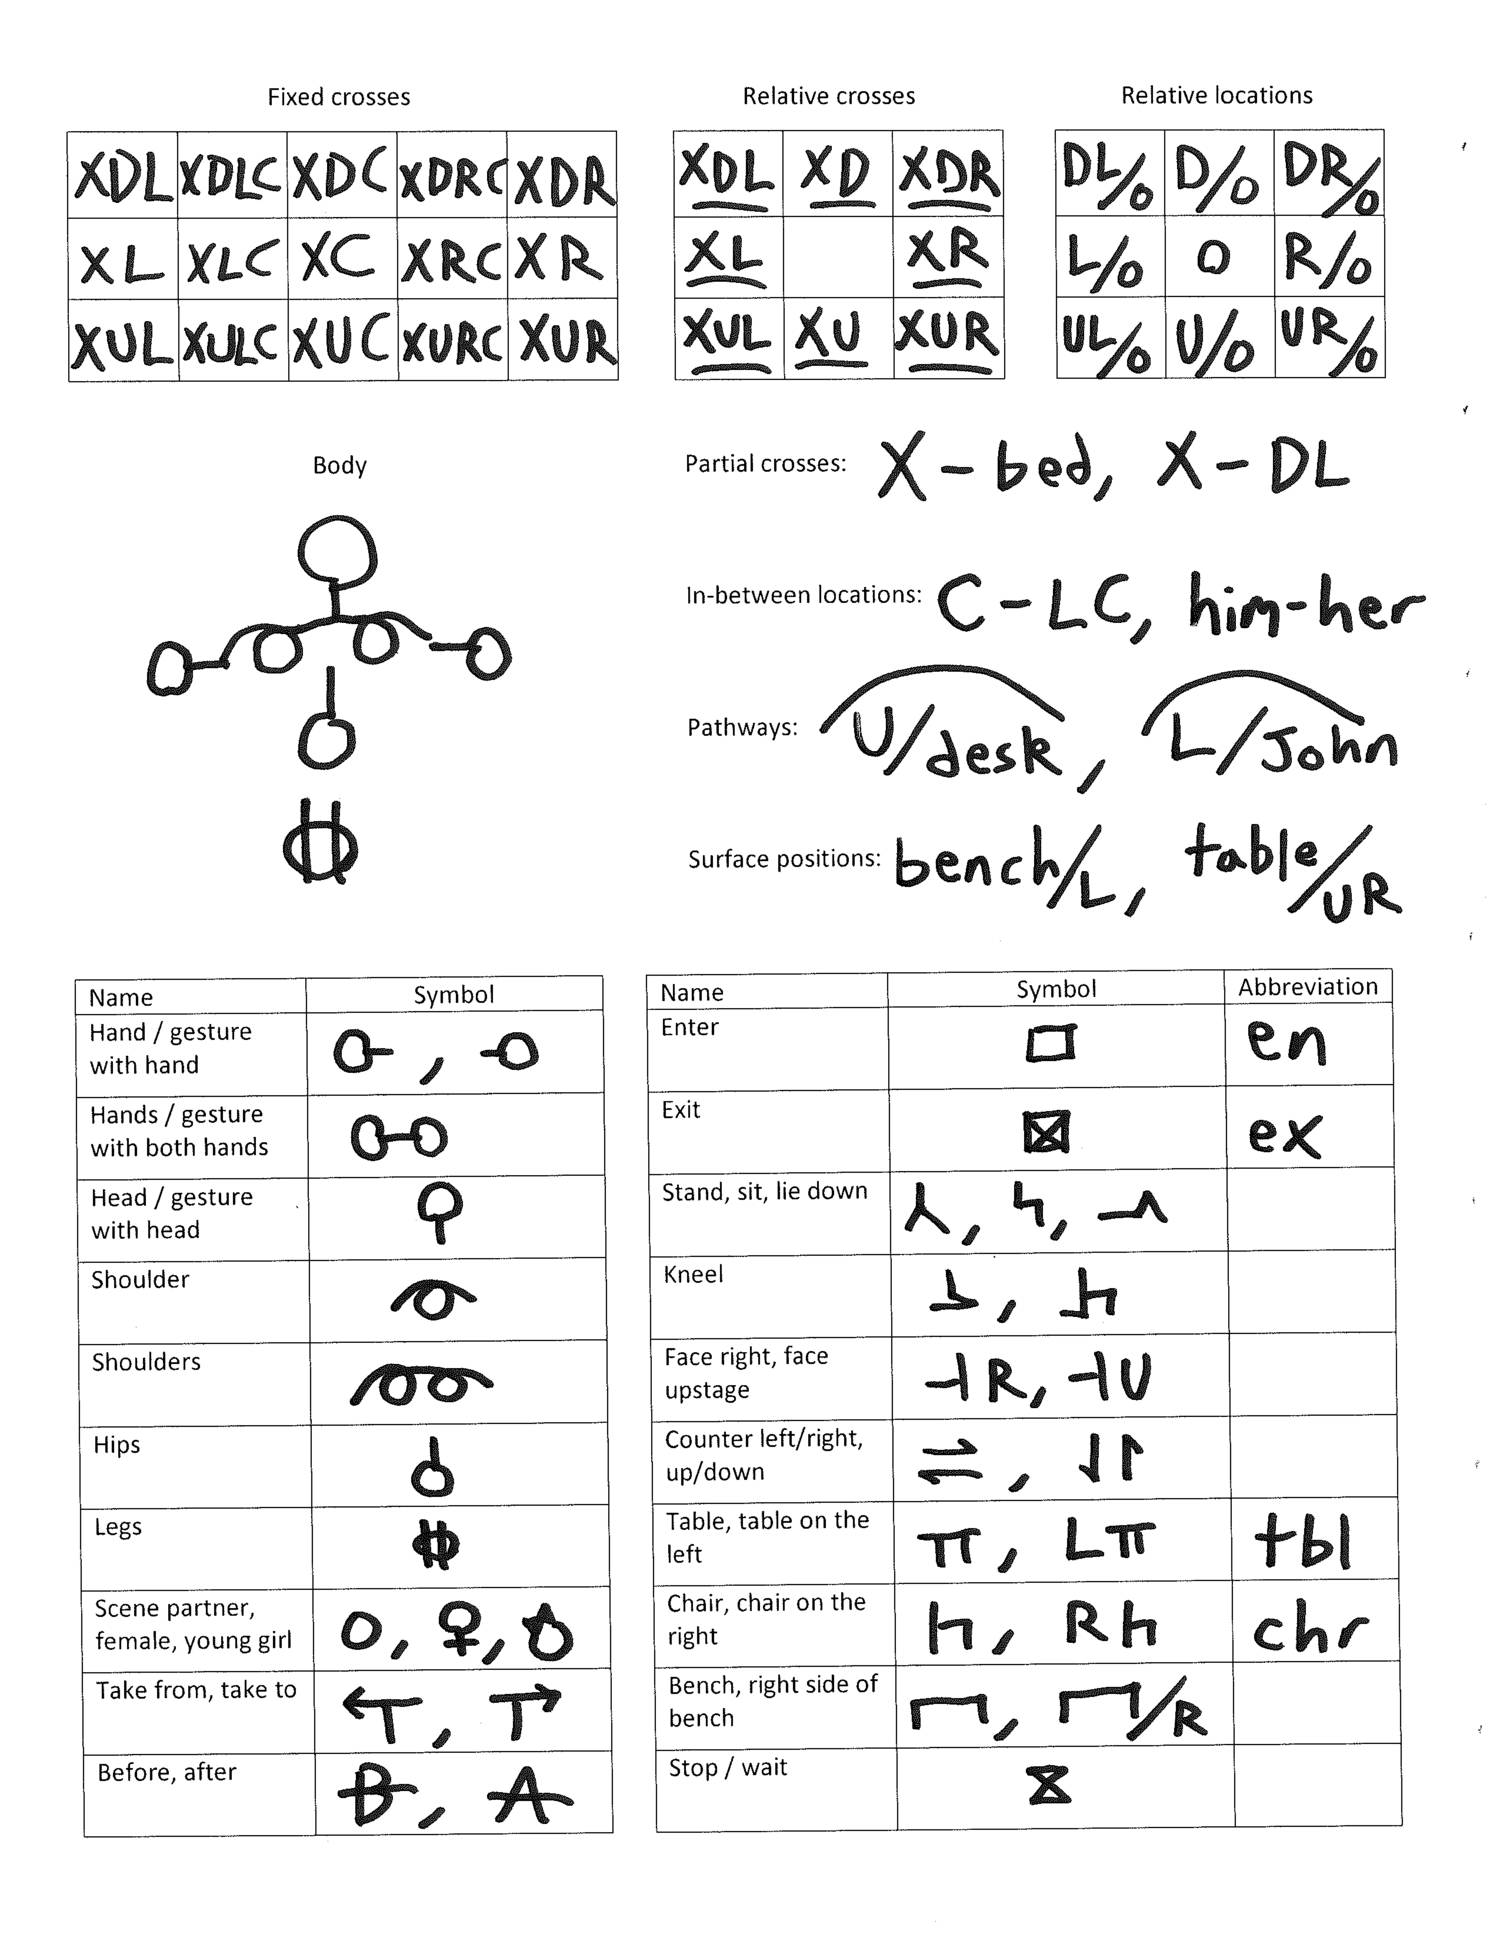 Fixed crosses
XDL XDLC XDC XDRC XDR
XL XLC XC XRC XR
XUL XULC XUC XURC XUR
Relative crosses
XDL XD XDR
XL XR
XUL XU XUR
Relative locations
DL/O D/O DR/O
L/O O R/O
UL/O U/O UR/O
Body
Partial crosses: X-bed, X-DL
In-between locations: C-LC, him-her
Pathways: U/desk, L/John
Surface positions: bench/L, table/UR
Name Symbol
Hand / gesture
with hand ,
Hands / gesture
with both hands
Head / gesture
with head
Shoulder
Shoulders
Hips
Legs
Scene partner,
female, young girl O, ♀,
Take from, take to T, T
Before, after B, A
Name Symbol Abbreviation
Enter en
Exit ex
Stand, sit, lie down , ,
Kneel ,
Face right, face
upstage ⊣R, ⊣U
Counter left/right,
up/down ⇌, ⇃↾
Table, table on the
left π, Lπ tbl
Chair, chair on the
right h, Rh chr
Bench, right side of
bench , /R
Stop / wait